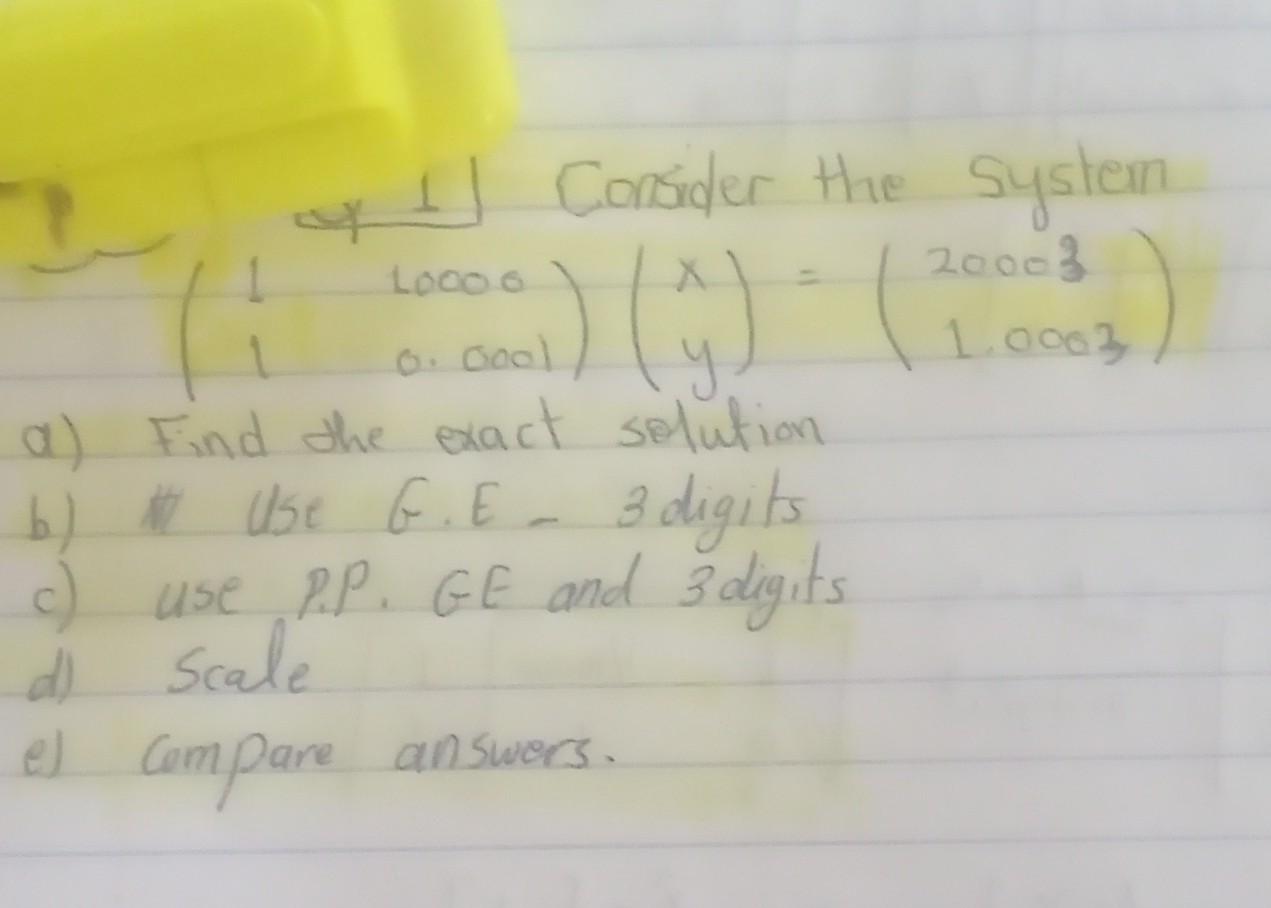 1] Consider the system
( 1 10000 ) ( x ) = ( 20003 )
( 1 0.0001 ) ( y ) ( 1.0003 )
a) Find the exact solution
b) Use G.E - 3 digits
c) use P.P. GE and 3 digits
d) Scale
e) Compare answers.